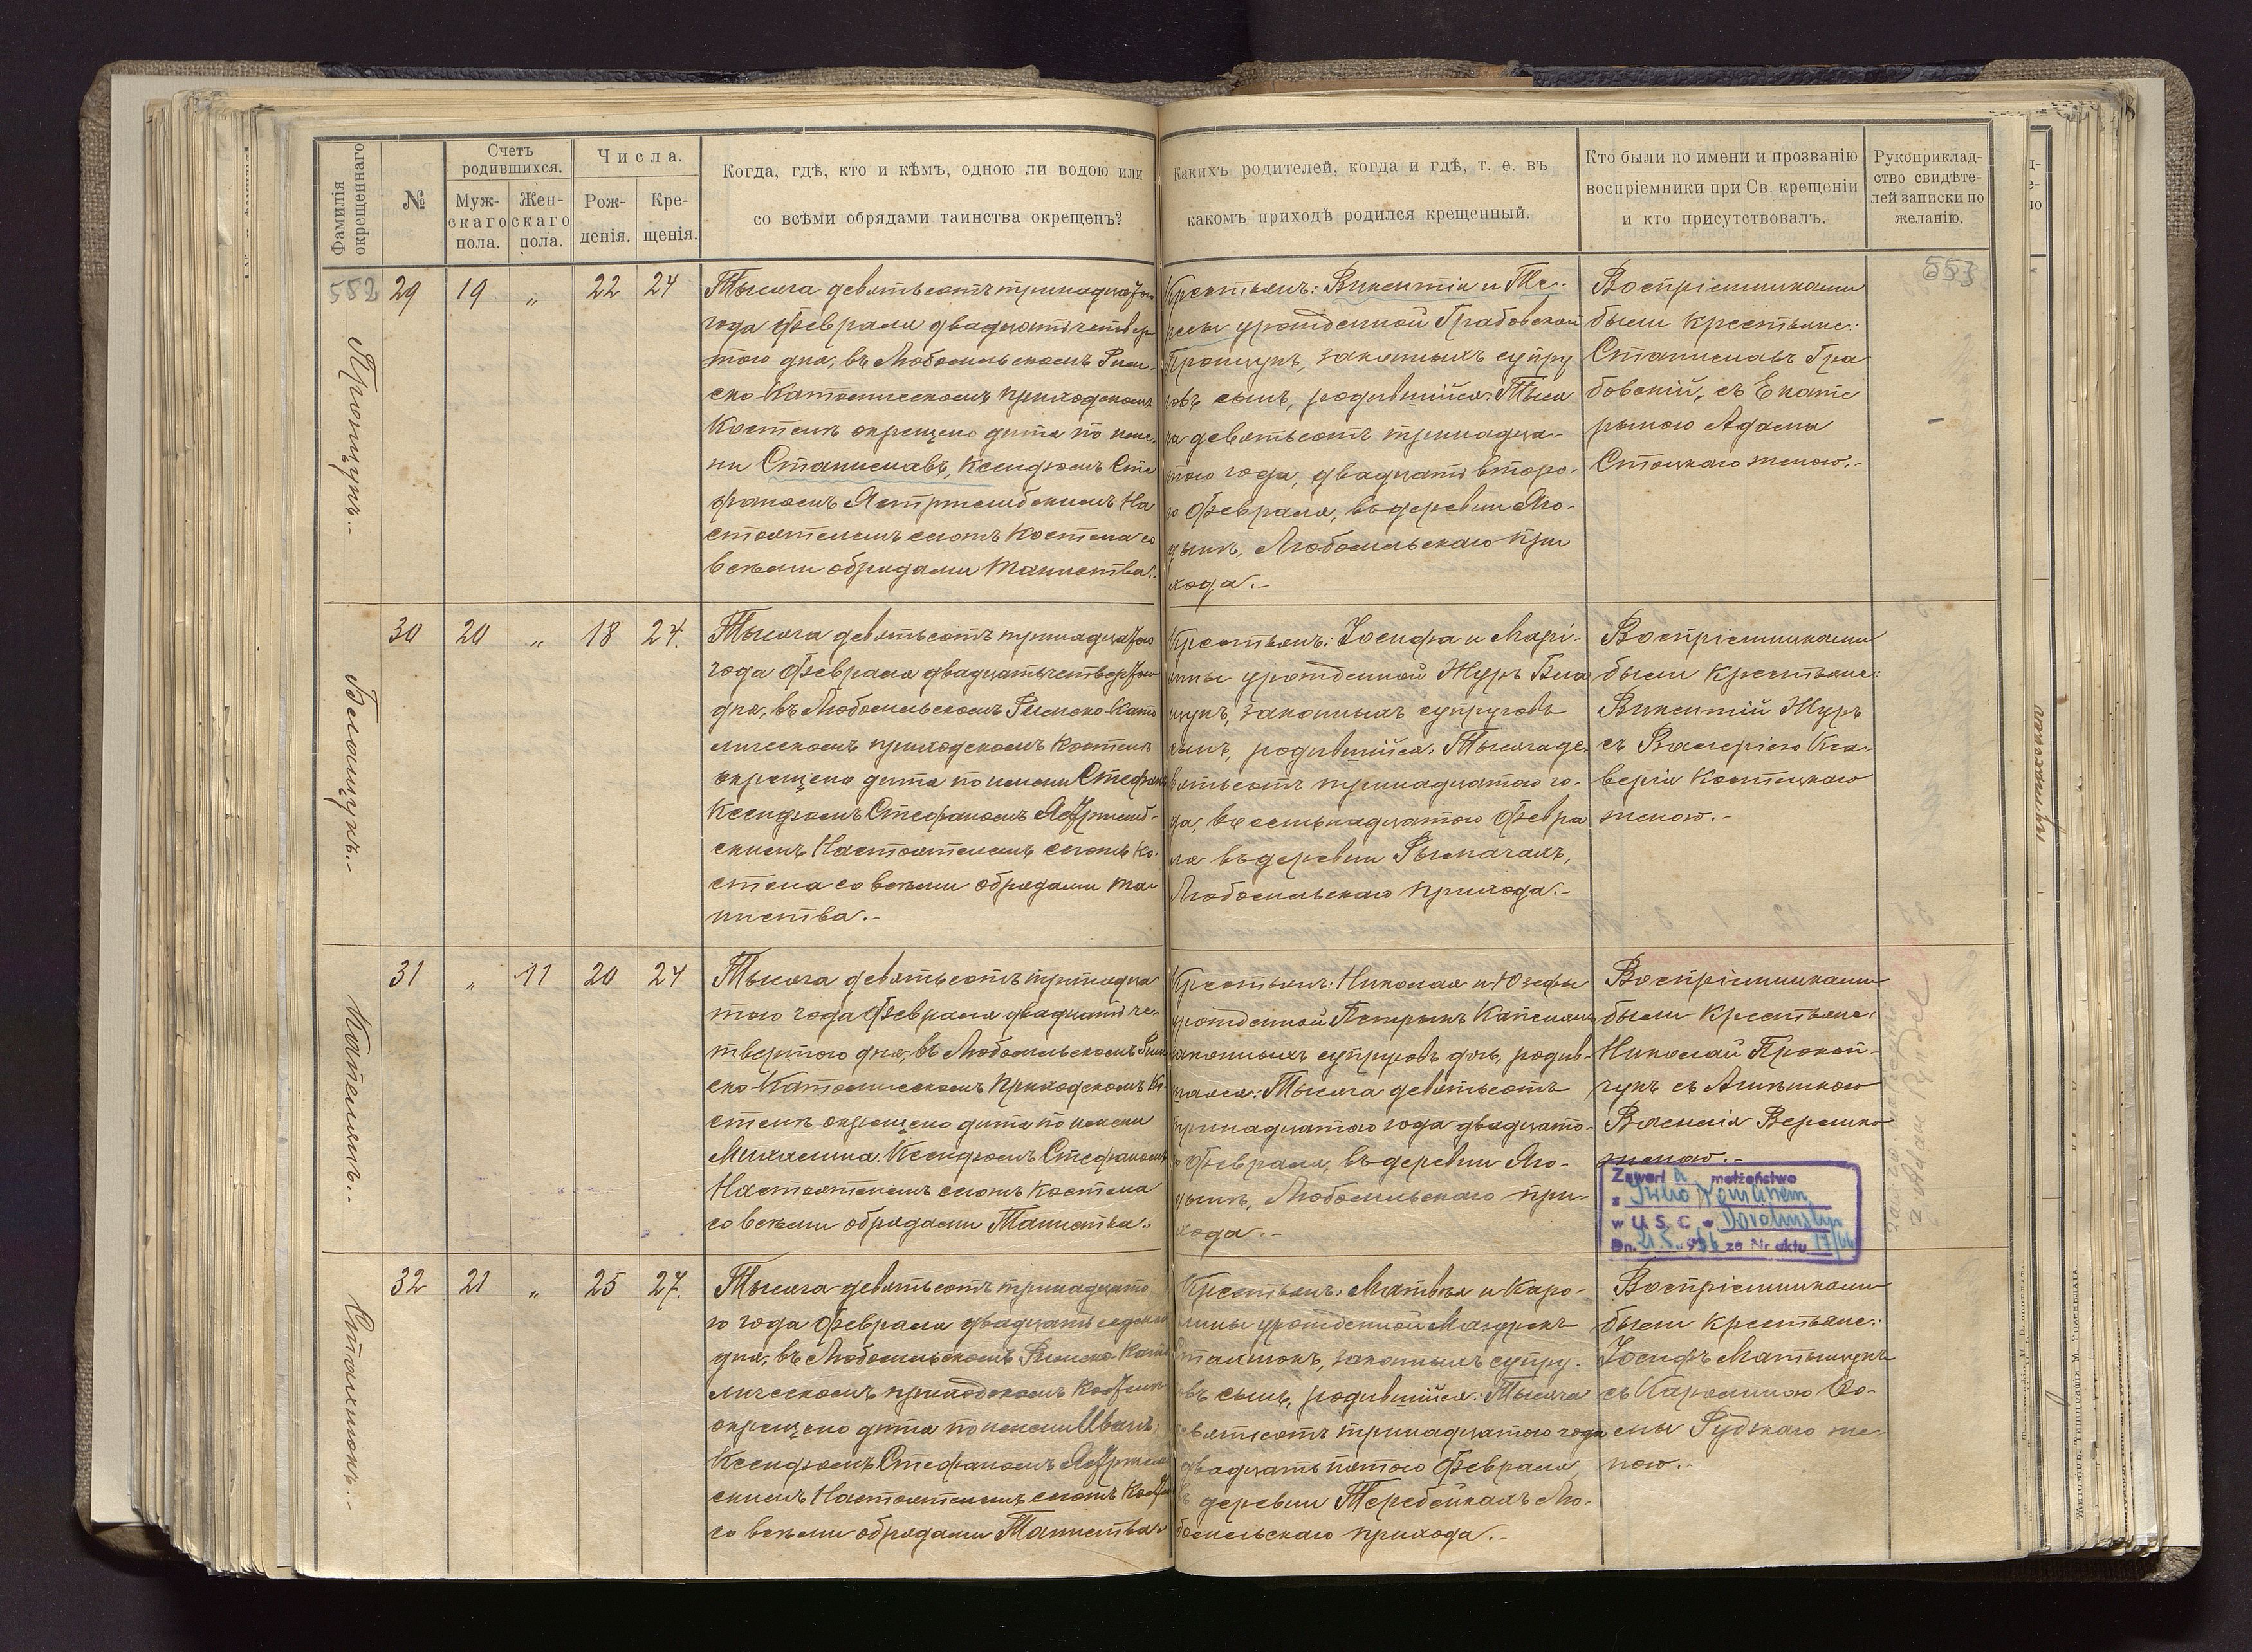 Фамилія
окрещеннаго
№
Счетъ
родившихся.
Муж-
скаго
пола.
Жен-
скаго
пола.
Числа.
Рож-
денія.
Кре-
щенія.
Когда, гдѣ, кто и кѣмъ, одною ли водою или
со всѣми обрядами таинства окрещенъ?
Какихъ родителей, когда и гдѣ, т. е. въ
какомъ приходѣ родился крещенный.
Кто были по имени и прозванію
воспріемники при Св. крещеніи
и кто присутствовалъ.
Рукоприклад-
ство свидѣте-
лей записки по
желанію.
582
553
Прощукъ.-
29 19 „ 22 24
Тысяча девятьсотъ тринадцатого
года Февраля двадцать четвер-
того дня, въ Любомльскомъ Рим-
ско-Католическомъ приходскомъ
Костелѣ окрещено дитя по име-
ни Станиславъ, Ксендзомъ Сте
фаномъ Ястржембскимъ На
стоятелемъ сего Костела со
всѣми обрядами Таинства.-
Крестьянъ: Викентія и Те-
ресы урожденной Грабовской
Прощукъ, законныхъ супру
говъ сынъ, родившійся: Тыся
ча девятьсотъ тринадца-
того года, двадцать второ-
го Февраля, въ деревни Яго-
дынѣ, Любомльскаго При
хода.-
Воспріемниками
были Крестьяне:
Станиславъ Гра
бовскій, съ Екате
риною Адама
Стоцкаго женою.-
Белащукъ.-
30 20 „ 18 24.
Тысяча девятьсотъ тринадцатого
года Февраля двадцать четвертого
дня, въ Любомльскомъ Римско-Като
лическомъ приходскомъ Костелѣ
окрещено дитя по имени Стефанъ
Ксендзомъ Стефаномъ Ястржемб-
скимъ Настоятелемъ сего Ко-
стела со всѣми обрядами та-
инства.-
Крестьянъ: Іосифа и Марі-
анны урожденной Журъ Бела
щукъ, законныхъ супруговъ
сынъ, родившійся: Тысяча де-
вятьсотъ тринадцатого го-
да, восемьнадцатого Февра
ля въ деревни Рымачахъ,
Любомльскаго прихода.-
Воспріемниками
были Крестьяне:
Викентій Журъ
съ Валеріею Кса-
верія Костецкаго
женою.-
31 „ 11 20 24
Тысяча девятьсотъ тринадца
того года Февраля двадцать че-
твертого дня, въ Любомльскомъ Рим
ско-Католическомъ Приходскомъ Ко-
стелѣ окрещено дитя по имени
Михалина. Ксендзомъ Стефаномъ
Настоятелемъ сего Костела
со всѣми обрядами Таинства.-
Крестьянъ: Николая и Юзефы
урожденной Петрыкъ
законныхъ супруговъ дочь, родив-
шаяся: Тысяча девятьсотъ
тринадцатого года двадцато-
го Февраля, въ деревни Яго-
дынѣ, Любомльскаго при-
хода.-
Воспріемниками
были Крестьяне:
Николай Прокоп-
чукъ съ
Василія
женою.-
Zawarł a małżeństwo
z
w U. S. C. w Dorohusku
Dn. za Nr aktu 17/66
2. Adam
Стахнюкъ.-
32 21 „ 25 27.
Тысяча девятьсотъ тринадцато
го года Февраля двадцать седьмого
дня, въ Любомльскомъ Римско-Като
лическомъ приходскомъ Костелѣ
окрещено дитя по имени Иванъ,
Ксендзомъ Стефаномъ Ястржемб
скимъ Настоятелемъ сего Костела
со всѣми обрядами Таинства.-
Крестьянъ: Матвѣя и Каро-
лины урожденной Мазурекъ
Стахнюкъ, законныхъ супру-
говъ сынъ, родившійся: Тысяча
девятьсотъ тринадцатого года
двадцать пятого Февраля,
въ деревни Теребейкахъ Лю-
бомльскаго прихода.-
Воспріемниками
были Крестьяне:
Іосифъ Матыщукъ
съ Каролиною Ѳо-
мы Рудзкаго же-
ною.-